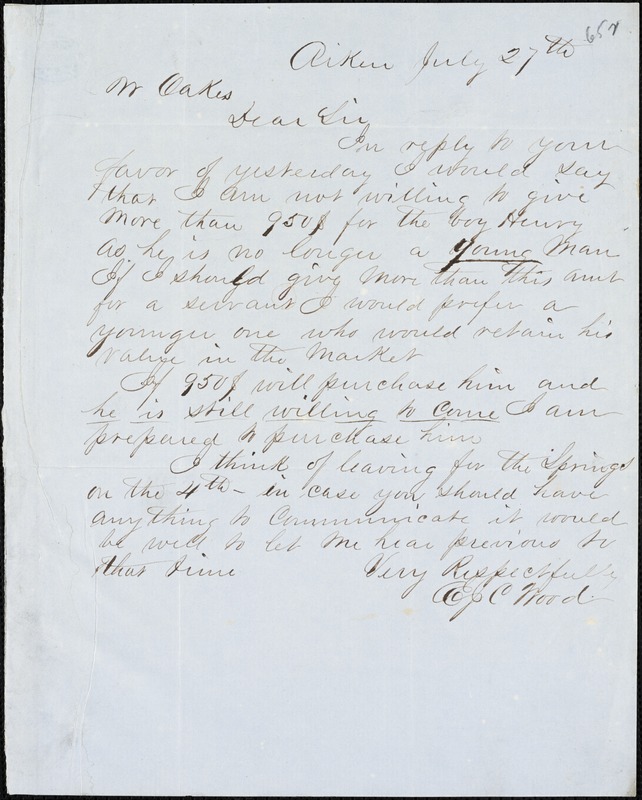 65r
Aiken July 27th
Mr Oakes
Dear Sir
In reply to your
favor of yesterday I would say
that I am not willing to give
more than 950$ for the boy Henry
as he is no longer a young man
If I should give more than this amt
for a servant I would prefer a
younger one who would retain his
value in the market
If 950$ will purchase him and
he is still willing to come I am
prepared to purchase him
I think of leaving for the Springs
on the 4th - in case you should have
anything to communicate it would
be well to let me hear previous to
that time Very Respectfully
C Wood